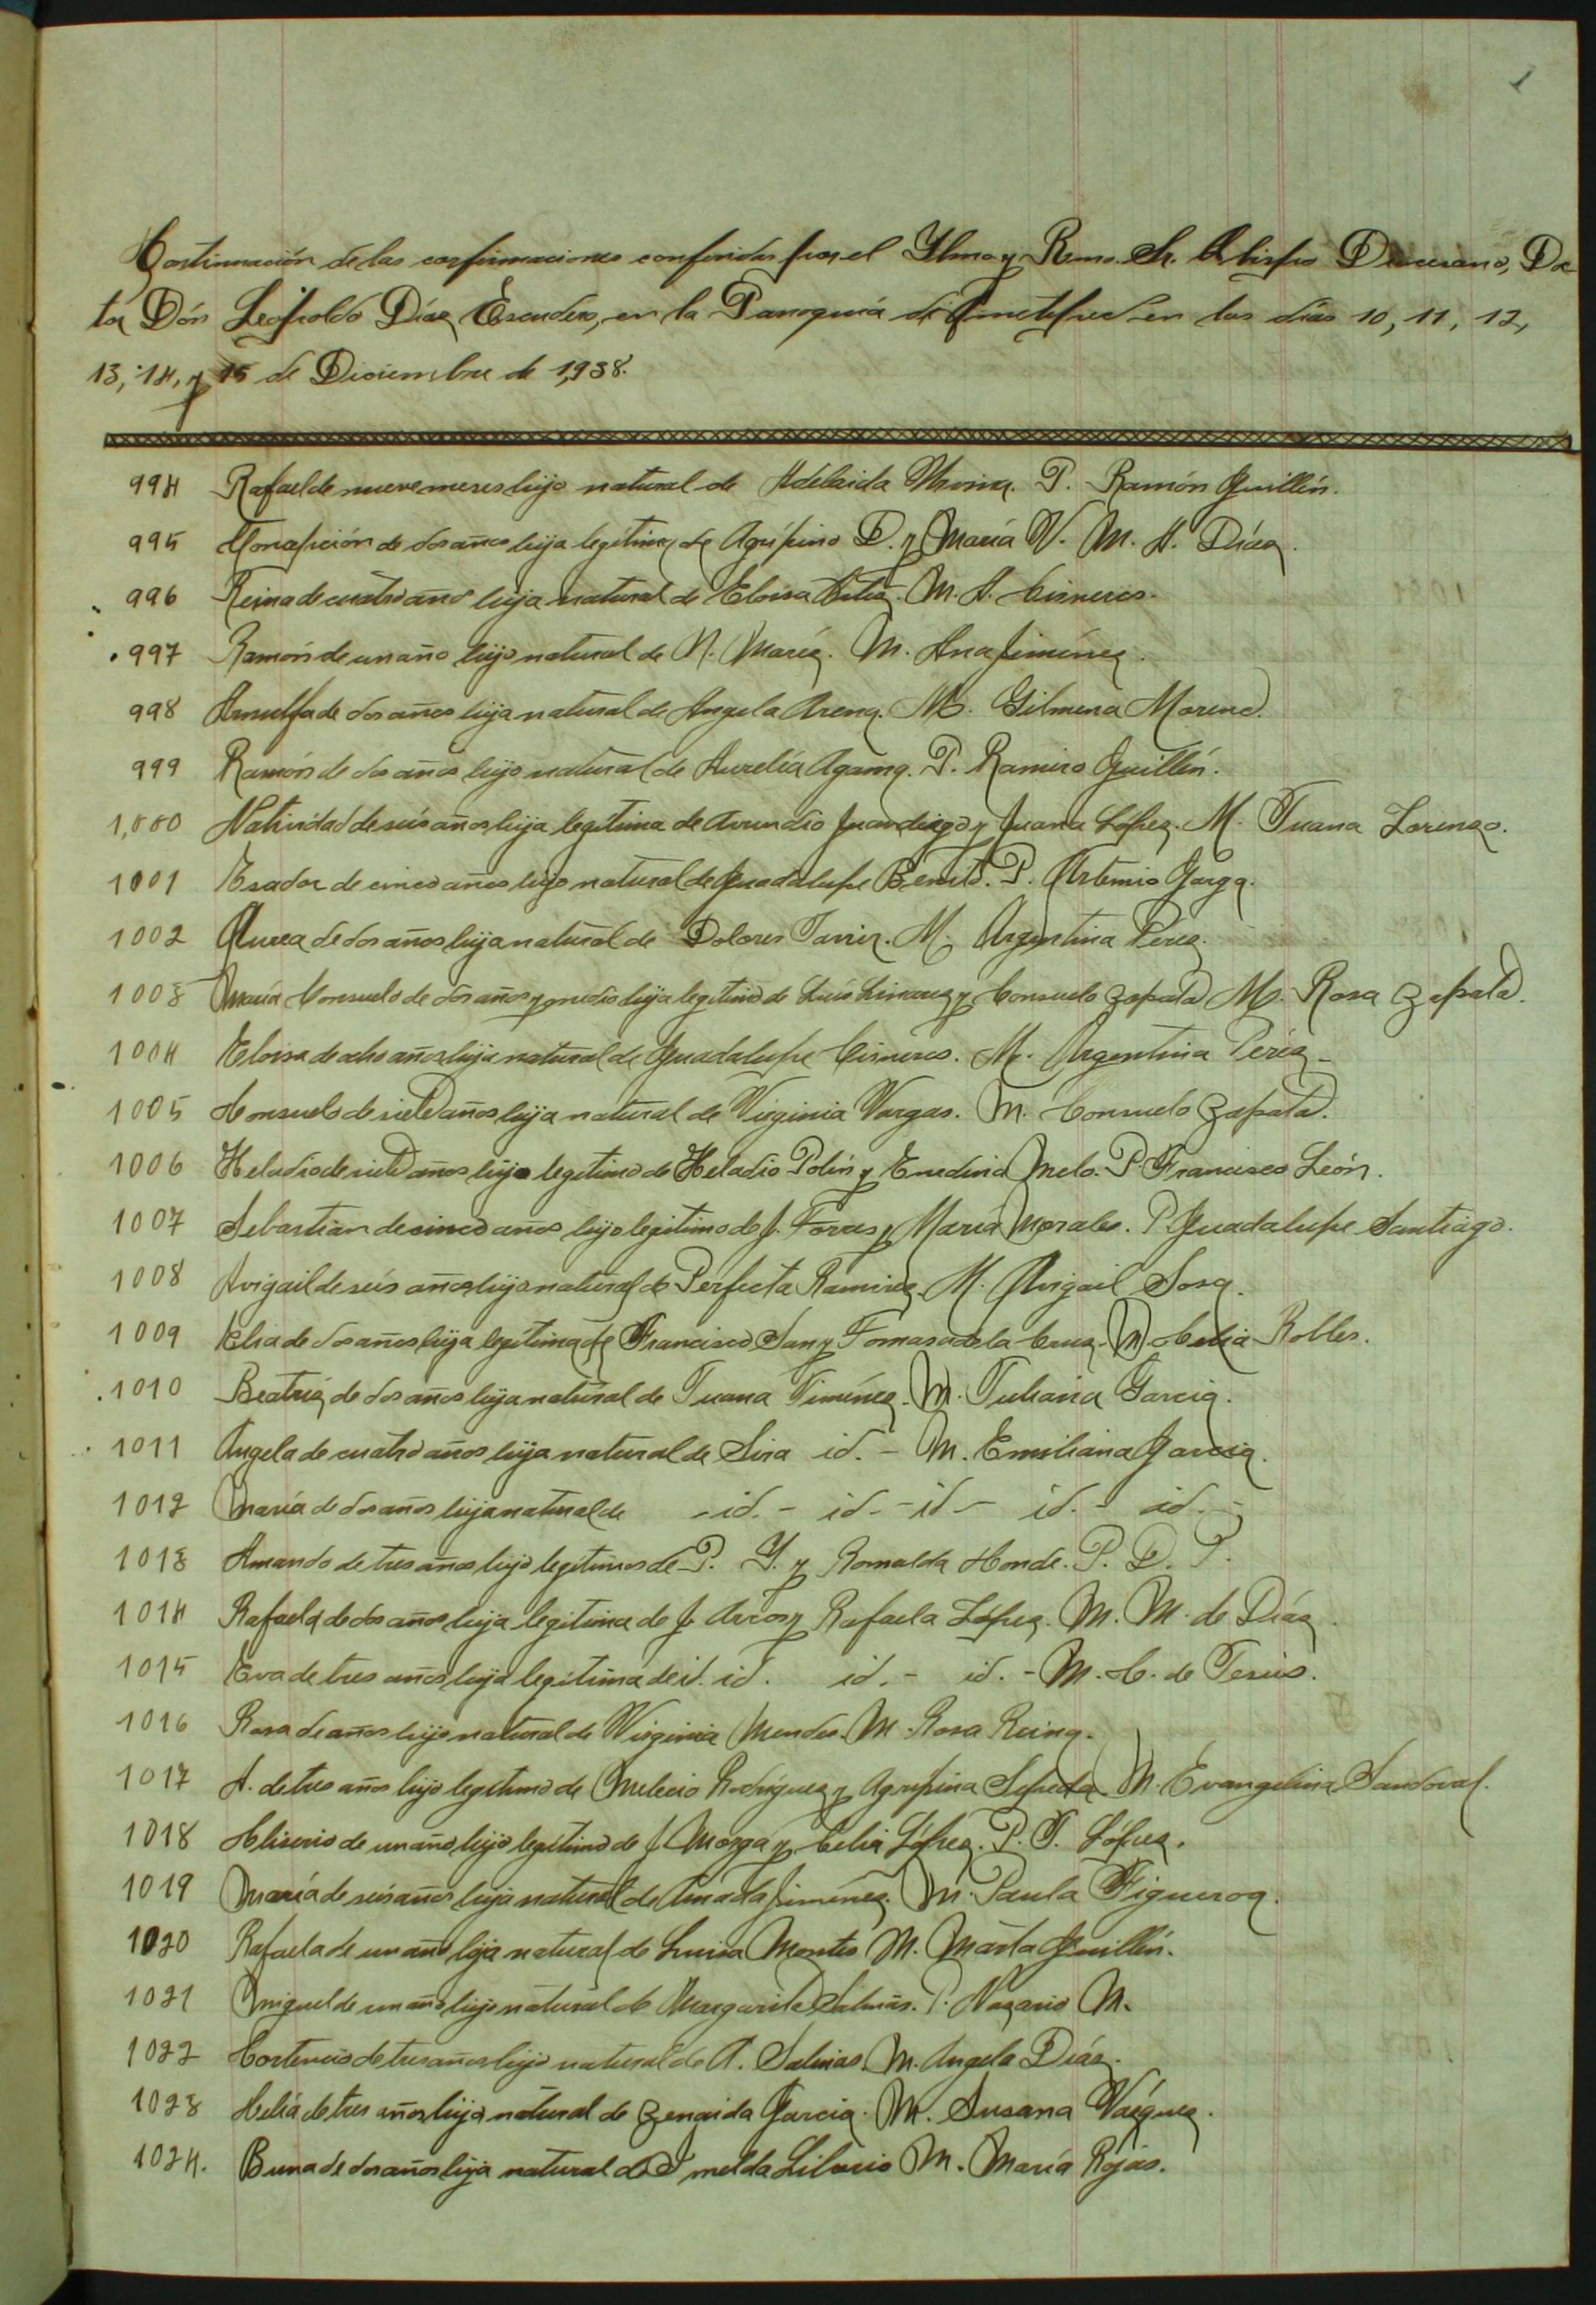 1
Continuación de las confirmaciones conferidas por el Ylmo. y Rmo. Sr. Obispo Diocesano, Doc-
tor Dón Leopoldo Díaz Escudero, en la Parroquia de Ometepec en los días 10, 11, 12,
13, 14, y 15 de Diciembre de 1,938.
994 Rafael de nueve meses hijo natural de Adelaida P. Ramón Guillén.
995 Concepción de dos años hija legítima de Agripino D. y María V. M. A. Díaz.
996 Reina de cuatro años hija natural de Eloisa M. A. Cisneros.
997 Ramón de un año hijo natural de N. María. M. Ana Jiménez.
998 Arnulfa de dos años hija natural de Angela Arena. M. Gilmena Moreno.
999 Ramón de dos años hijo natural de Aurelia Agama. P. Ramiro Guillén.
1,000 Natividad de seis años hija legítima de Juandiego y Juana López. M. Juana Lorenzo.
1001 Esador de cinco años hijo natural de Guadalupe Benito. P. Artemio Garza.
1002 Aurea de dos años hija natural de Dolores Javier. M. Argentina Pérez.
1003 María Consuelo de dos años y medio hija legitima de Luis Linarez y Consuelo Zapata M. Rosa Zapata.
1004 Eloisa de ocho años hija natural de Guadalupe Cisneros. M. Argentina Pérez.
1005 Consuelo de siete años hija natural de Virginia Vargas. M. Consuelo Zapata.
1006 Heladio de siete años hijo legitimo de Heladio Polín y Enedina Melo. P. Francisco León.
1007 Sebastian de cinco años hijo legitimo de J. Torres y María Morales. P. Guadalupe Santiago.
1008 Avigail de seis años hija natural de Perfecta Ramirez. M. Avigail Sosa.
1009 Elia de dos años hija legítima de Francisco San y Tomasa de la Cruz. M. Celia Robles.
1010 Beatriz de dos años hija natural de Juana Jiménez. M. Juliana Garcia.
1011 Angela de cuatro años hija natural de Sira id. - M. Emiliana Garcia.
1012 María de dos años hija natural de - id. - id - id - id. - id. -
1013 Amando de tres años hijo legítimo de P. Y. y Romalda Conde. P. D. P.
1014 Rafaela de dos años hija legitima de J. Arcos y Rafaela López. M. M. de Díaz.
1015 Eva de tres años hija legítima de id. id. id. - id. - M. C. de Jesús.
1016 Rosa de años hijo natural de Virginia Mendes. M. Rosa Reina.
1017 A. de tres años hijo legítimo de Melecio Rodríguez y Agripina Sepeda M. Evangelina Sandoval.
1018 Cliserio de un año hijo legítimo de J. Morga y Celia López. P. T. López.
1019 María de seis años hija natural de Amada Jiménez. M. Paula Figueroa.
1020 Rafaela de un año hija natural de Luisa Montes M. Marta Guillén.
1021 Miguel de un año hijo natural de Margarita Salinas. P. Nazario M.
1022 Hortencio de tres años hijo natural de A. Salinas. M. Angela Díaz.
1023 Celia de tres años hija natural de Zenaida Garcia. M. Susana Vázquez.
1024. Buna de dos años hija natural de Imelda Liborio M. María Rojas.